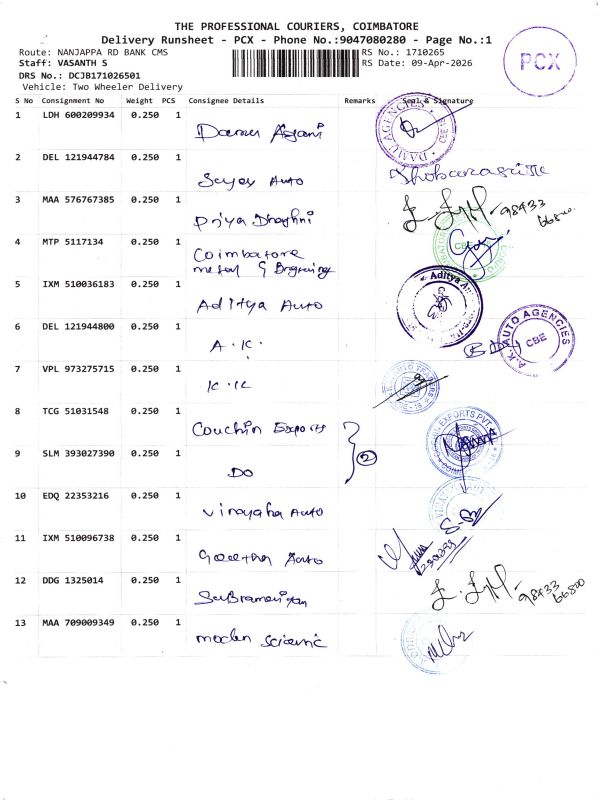 THE PROFESSIONAL COURIERS, COIMBATORE
Delivery Runsheet - PCX - Phone No.:9047080280 - Page No.:1
Route: NANJAPPA RD BANK CMS
RS No.: 1710265
Staff: VASANTH S
RS Date: 09-Apr-2026
DRS No.: DCJB171026501
Vehicle: Two Wheeler Delivery
PCX
S No Consignment No Weight PCS Consignee Details Remarks Seal & Signature
1 LDH 600209934 0.250 1
DAMU AGENCIES
2 DEL 121944784 0.250 1
Auto
3 MAA 576767385 0.250 1
Priya
98433
66800
4 MTP 5117134 0.250 1
Coimbatore
metal &
5 IXM 510036183 0.250 1
Aditya Auto
Aditya A
6 DEL 121944800 0.250 1
A.K.
A.K. AUTO AGENCIES
CBE
7 VPL 973275715 0.250 1
K.K
8 TCG 51031548 0.250 1
Couchin Exports
EXPORTS PVT
2
9 SLM 393027390 0.250 1
DO
10 EDQ 22353216 0.250 1
Vinayaha Auto
11 IXM 510096738 0.250 1
Geetha Auto
12 DDG 1325014 0.250 1
98433
66800
13 MAA 709009349 0.250 1